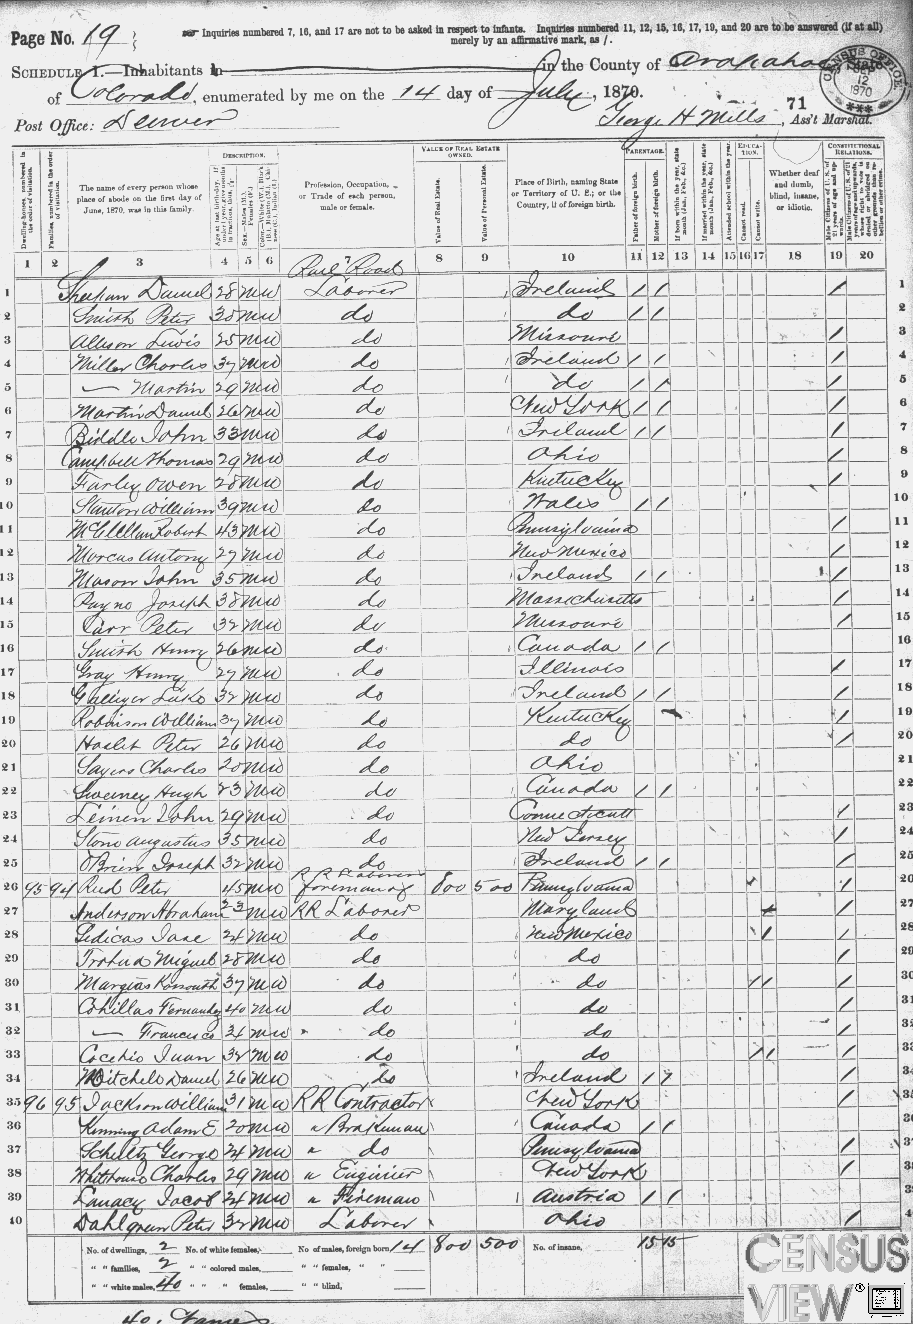 Page No. 19
Inquiries numbered 7, 16, and 17 are not to be asked in respect to infants. Inquiries numbered 11, 12, 15, 16, 17, 19, and 20 are to be answered (if at all) merely by an affirmative mark, as /.
SCHEDULE 1.—Inhabitants in in the County of Arapahoe, State
of Colorado, enumerated by me on the 14 day of July, 1870.
71
Post Office: Denver
George H Mills, Ass't Marshal.
CENSUS OFFICE 12 1870
DESCRIPTION. VALUE OF REAL ESTATE OWNED. PARENTAGE. EDUCATION. CONSTITUTIONAL RELATIONS.
Dwelling-houses, numbered in the order of visitation.
Families, numbered in the order of visitation.
The name of every person whose place of abode on the first day of June, 1870, was in this family.
Profession, Occupation, or Trade of each person, male or female.
Value of Real Estate.
Value of Personal Estate.
Place of Birth, naming State or Territory of U. S.; or the Country, if of foreign birth.
Father of foreign birth.
Mother of foreign birth.
Attended school within the year.
Cannot read.
Cannot write.
Whether deaf and dumb, blind, insane, or idiotic.
1 2 3 4 5 6 7 8 9 10 11 12 13 14 15 16 17 18 19 20
Rail Road
1 Daniel 28 M W Laborer Ireland / / / 1
2 Smith Peter M W do do / / 2
3 Allison Lewis 25 M W do Missouri / 3
4 Miller Charles 37 M W do Ireland / / / 4
5 — Martin 29 M W do do / / / 5
6 Martin Daniel 26 M W do New York / / / 6
7 Biddle John 33 M W do Ireland / / / 7
8 Campbell Thomas 29 M W do Ohio / 8
9 Farley Owen 28 M W do Kentucky 9
10 Stanton William 39 M W do Wales / / 10
11 McClellan Robert 43 M W do Pennsylvania / 11
12 Marcus Antony 27 M W do New Mexico 12
13 Mason John 35 M W do Ireland / / / 13
14 Payne Joseph 38 M W do Massachusetts / 14
15 Carr Peter 32 M W do Missouri / 15
16 Smith Henry 26 M W do Canada / / 16
17 Gray Henry 27 M W do Illinois / 17
18 Luke 32 M W do Ireland / / / 18
19 Robinson William 37 M W do Kentucky / 19
20 Haslet Peter 26 M W do do / 20
21 Sayers Charles 20 M W do Ohio 21
22 Sweeney Hugh 23 M W do Canada / / 22
23 Leinen John 29 M W do Connecticutt / 23
24 Stone Augustus 35 M W do New Jersey / 24
25 O'Brien Joseph 32 M W do Ireland / / / 25
26 95 94 Peter 45 M W foreman of R R Laborers 800 500 Pennsylvania / 26
27 Anderson Abraham 23 M W RR Laborer Maryland / 27
28 24 M W do New Mexico / / 28
29 Miguel 28 M W do do / 29
30 37 M W do do / / / 30
31 Fernandez 40 M W do do / 31
32 — Francisco 34 M W " do do / 32
33 Juan 32 M W do do / / / 33
34 Mitchell Daniel 26 M W do Ireland / / / 34
35 96 95 Jackson William 31 M W RR Contractor New York / 35
36 Adam E 20 M W " Brakeman Canada / / 36
37 Schultz George 24 M W " do Pennsylvania / 37
38 Whithouse Charles 29 M W " Enginier New York / 38
39 Jacob 24 M W " Fireman Austria / / / 39
40 Dahlgreen Peter 32 M W Laborer Ohio / 40
No. of dwellings, 2 No. of white females, No. of males, foreign born, 14 800 500 No. of insane, 15 15
" " families, 2 " " colored males, " " females, " "
" " white males, 40 " " females, " " blind,
CENSUS
VIEW ®